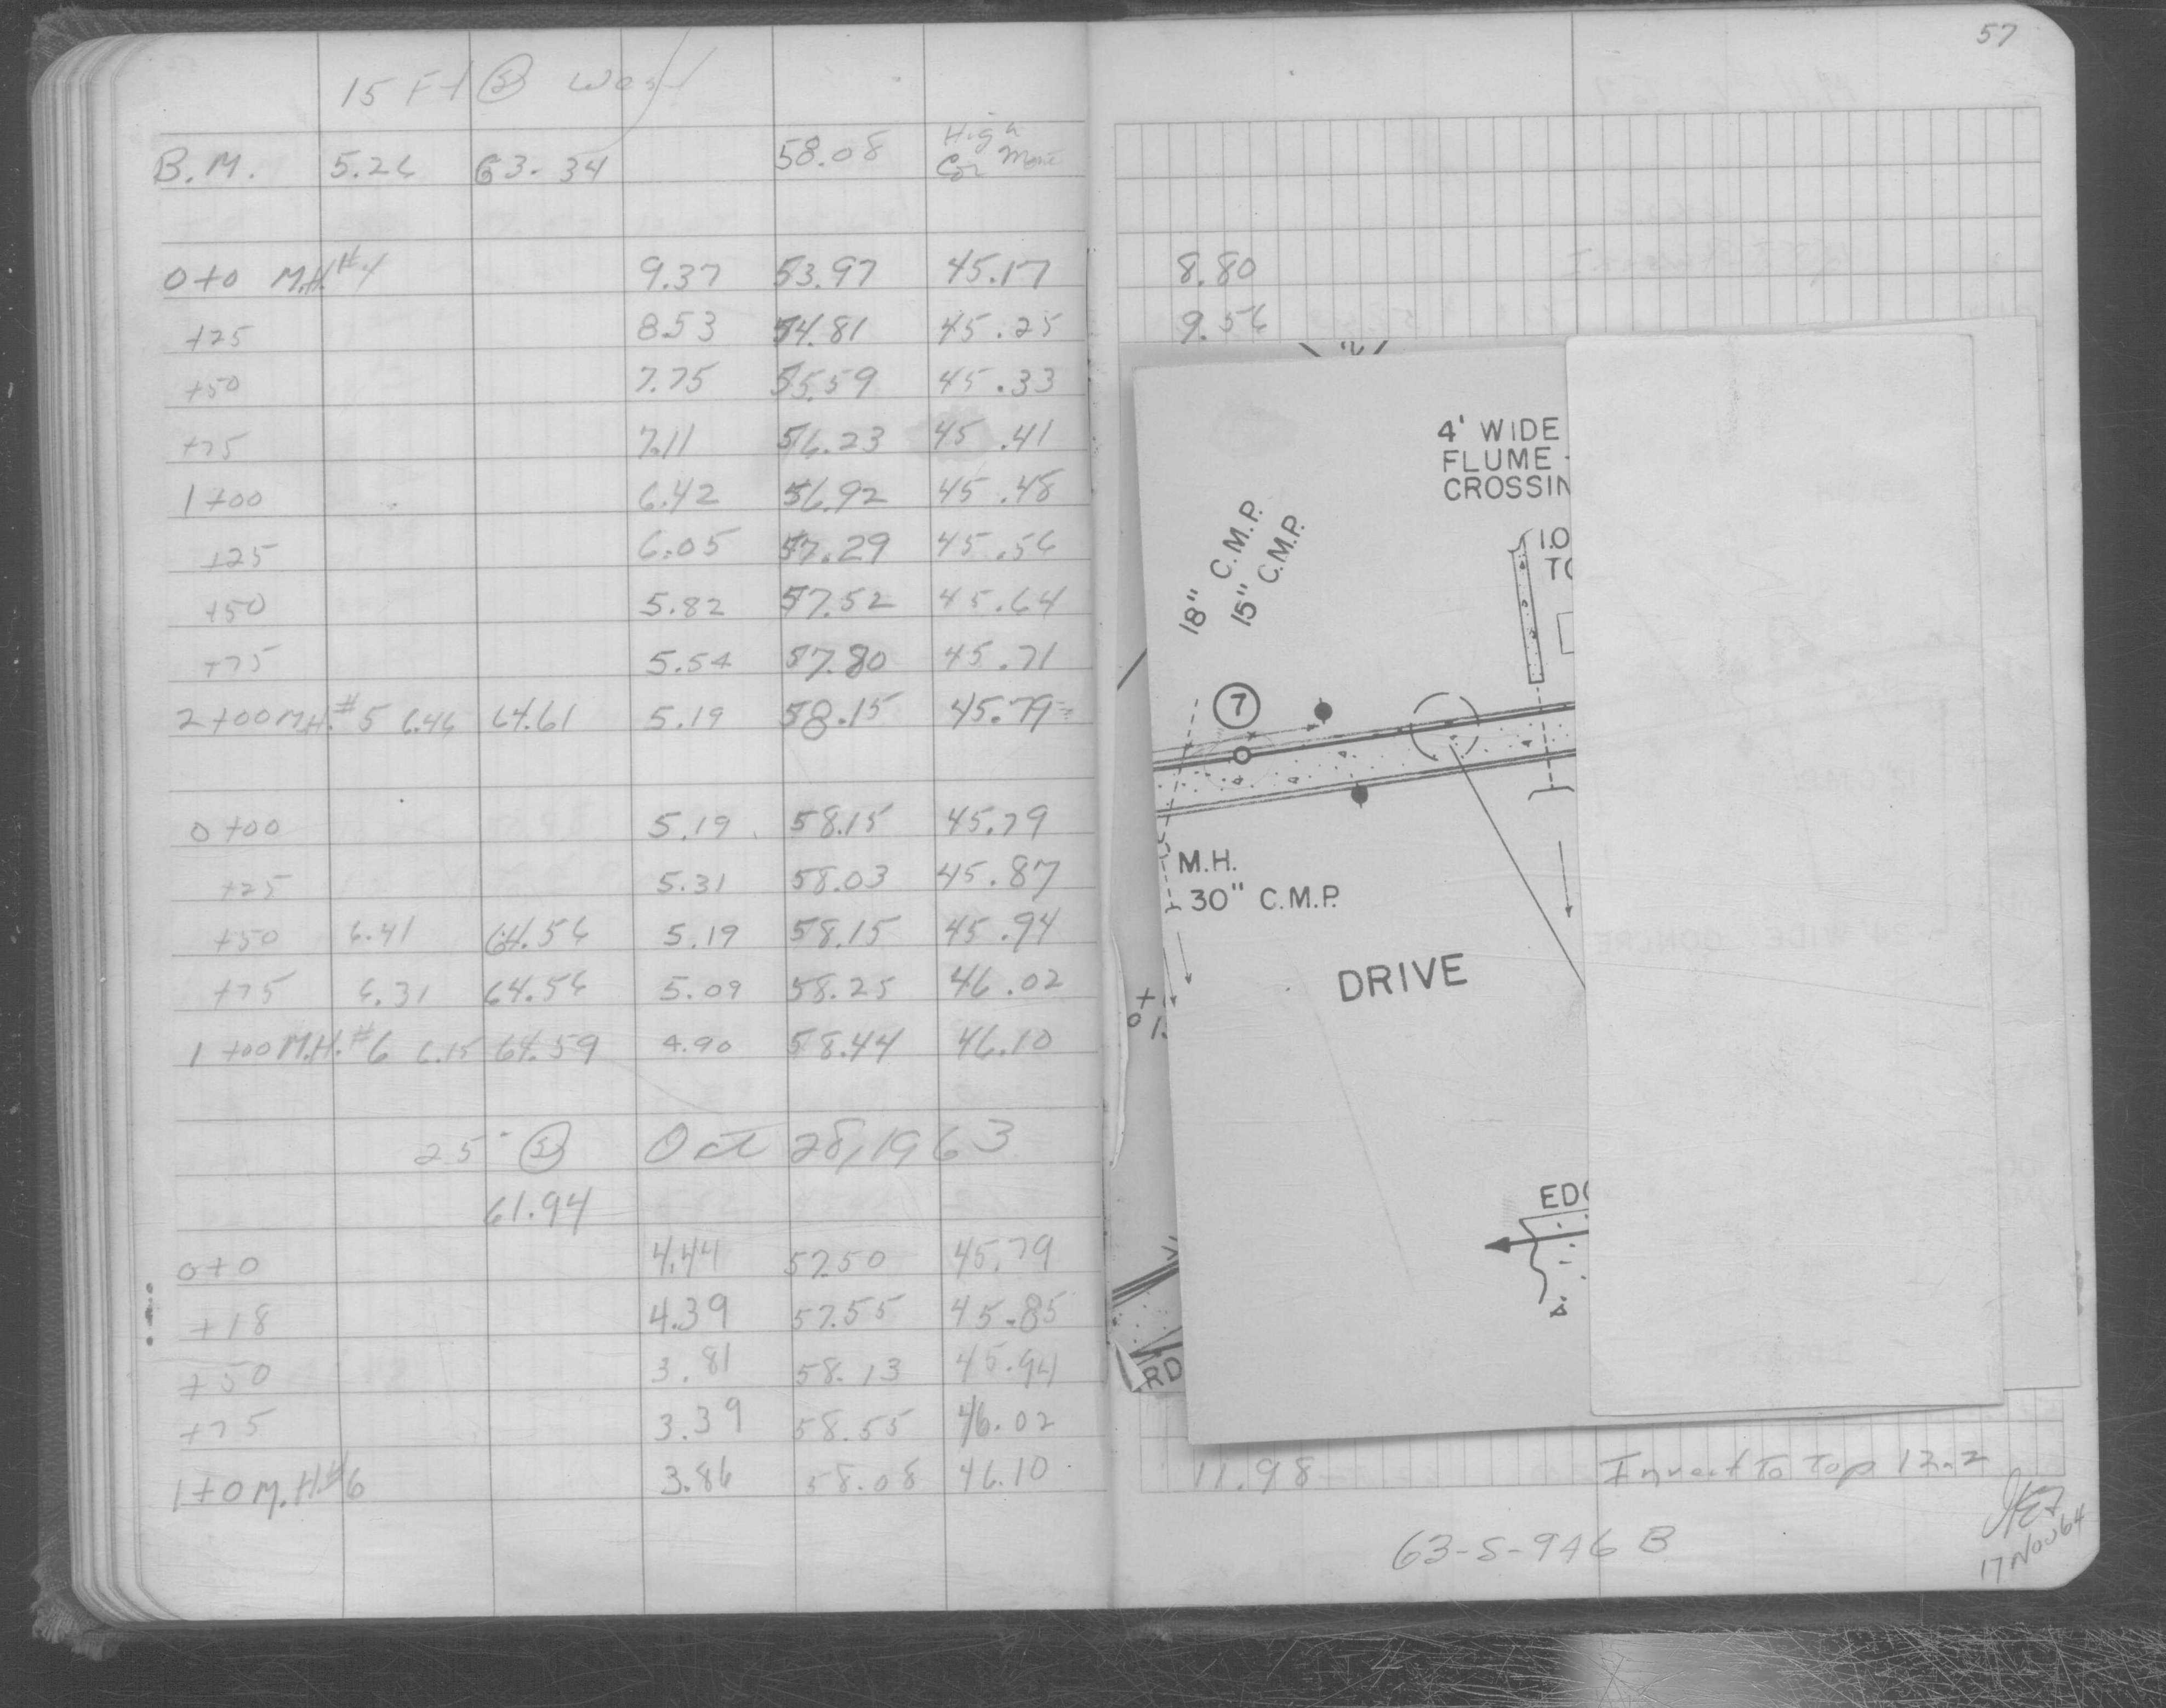 57
15 Ft Ⓢ West
B.M. 5.26 63.34 58.08 High Cor Mon
0+0 M.H.#4 9.37 53.97 45.17 8.80
+25 8.53 54.81 45.25 9.56
+50 7.75 55.59 45.33
+75 7.11 56.23 45.41
1+00 6.42 56.92 45.48
+25 6.05 57.29 45.56
+50 5.82 57.52 45.64
+75 5.54 57.80 45.71
2+00 M.H.#5 6.46 64.61 5.19 58.15 45.79
0+00 5.19 58.15 45.79
+25 5.31 58.03 45.87
+50 6.41 64.56 5.19 58.15 45.94
+75 6.31 64.56 5.09 58.25 46.02
1+00 M.H.#6 6.15 64.59 4.90 58.44 46.10
25' Ⓢ Oct 28, 1963
61.94
0+0 4.44 57.50 45.79
+18 4.39 57.55 45.85
+50 3.81 58.13 45.94
+75 3.39 58.55 46.02
1+0 M.H.#6 3.86 58.08 46.10 11.98 Invert To Top 12.2
63-S-946 B
17 Nov 64
4' WIDE
FLUME
CROSSIN
18" C.M.P.
15" C.M.P.
1.0
7
M.H.
30" C.M.P.
DRIVE
RD